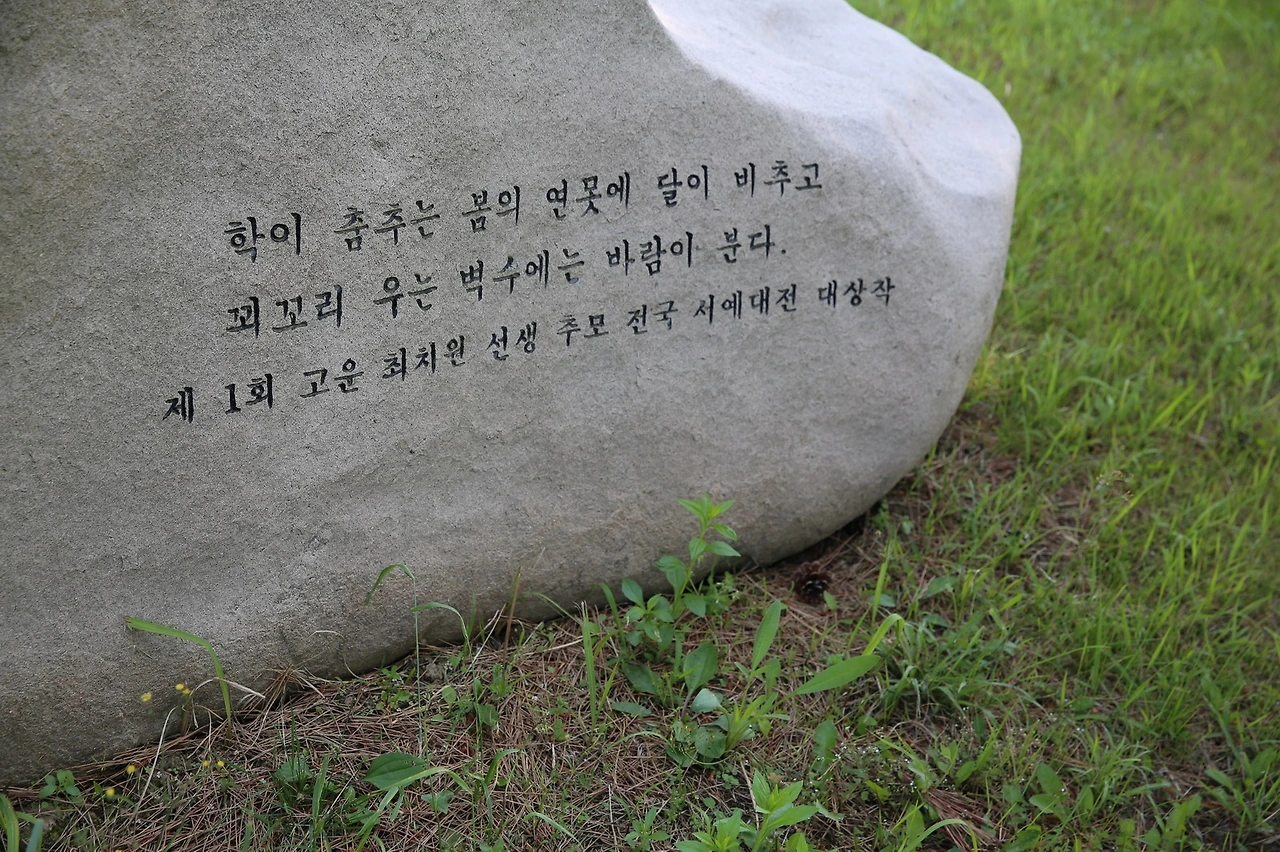 학이 춤추는 봄의 연못에 달이 비추고
꾀꼬리 우는 벽수에는 바람이 분다.
제 1회 고운 최치원 선생 추모 전국 서예대전 대상작